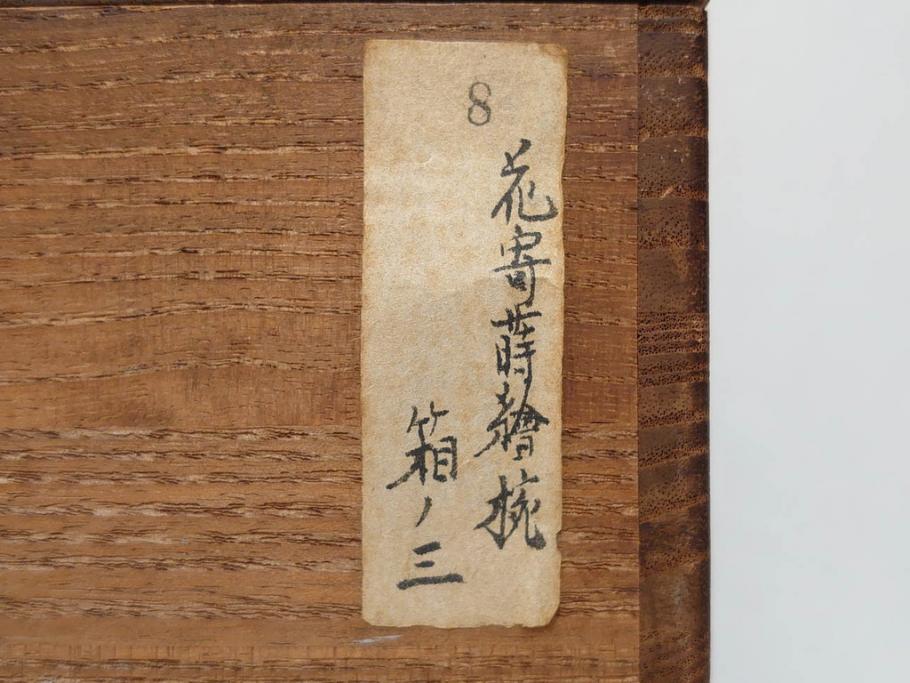 8
花寄蒔繪椀
箱ノ三